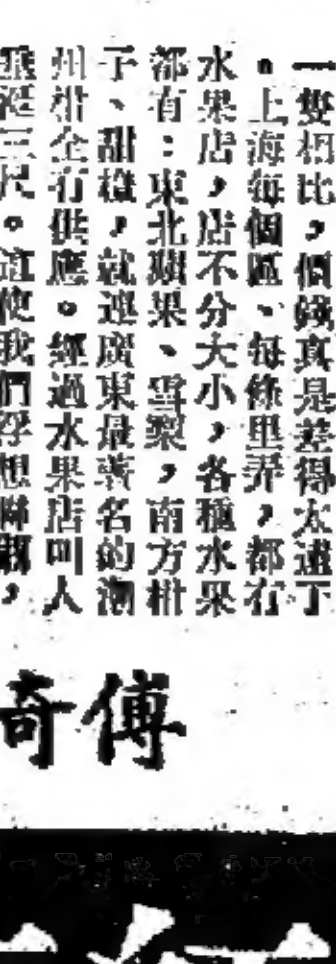 一隻相比，價錢真是差得太遠了
。上海每個區、每條里弄，都有
水果店，店不分大小，各種水果
都有：東北蘋果、雪梨，南方柑
子、甜橙，就連廣東最著名的潮
州柑全有供應。經過水果店叫人
垂涎三尺。這使我們浮想聯翩，
傳奇